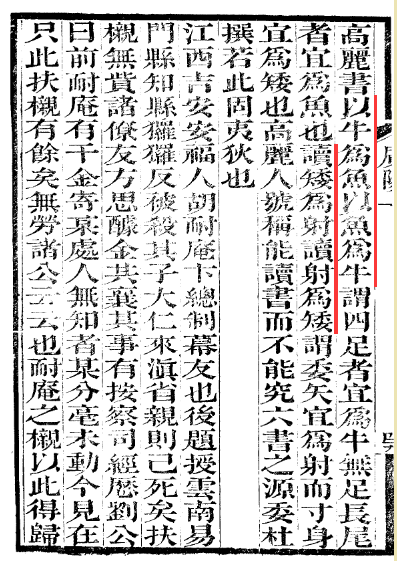 高麗書以牛爲魚以魚爲牛謂四足者宜爲牛無足長尾
者宜爲魚也讀矮爲射讀射爲矮謂委矢宜爲射而寸身
宜爲矮也高麗人號稱能讀書而不能究六書之源委杜
撰若此固夷狄也
江西吉安安福人胡耐庵卞總制幕友也後題授雲南易
門縣知縣玀玀反被殺其子大仁來滇省親則已死矣扶
櫬無貲諸僚友方思醵金共襄其事有按察司經歷劉公
曰前耐庵有千金寄某處人無知者某分毫未動今見在
只此扶櫬有餘矣無勞諸公云云也耐庵之櫬以此得歸